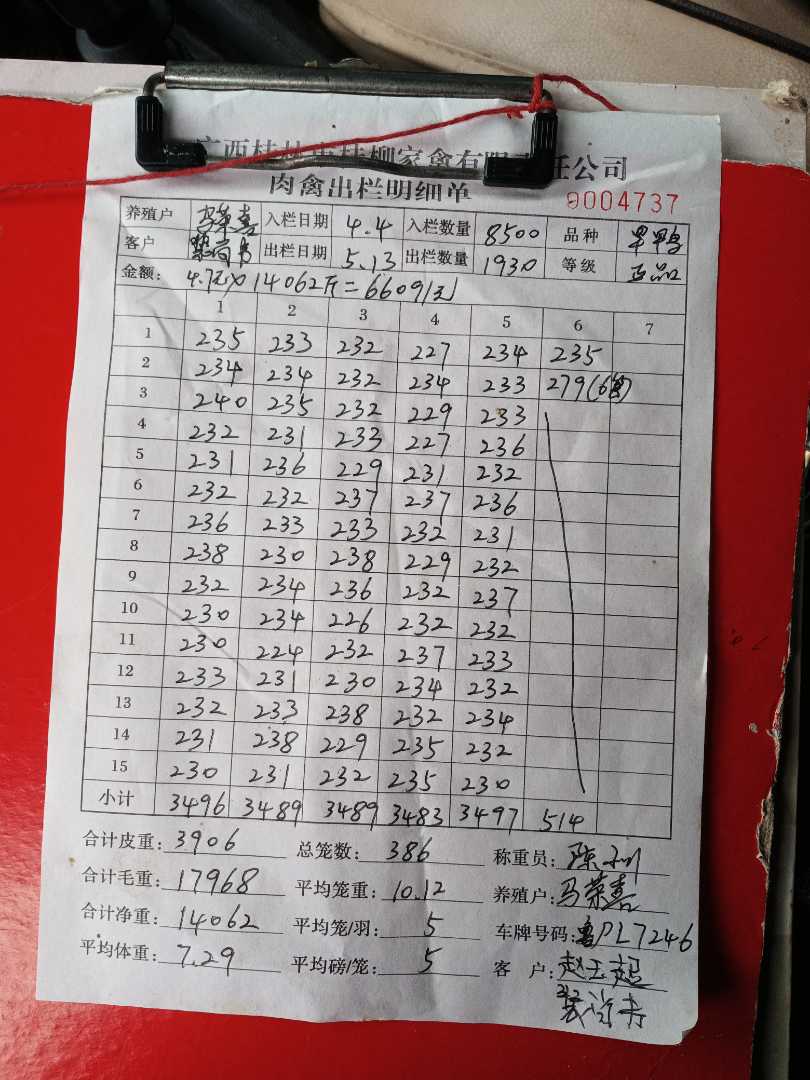 广西桂林市桂柳家禽有限责任公司
肉禽出栏明细单 9004737
养殖户 马荣喜 入栏日期 4.4 入栏数量 8500 品种
客户 出栏日期 5.13 出栏数量 1930 等级 正品
金额: 4.7元×14062斤=66091元
1 2 3 4 5 6 7
1 235 233 232 227 234 235
2 234 234 232 234 233 279(6)
3 240 235 232 229 233
4 232 231 233 227 236
5 231 236 229 231 232
6 232 232 237 237 236
7 236 233 233 232 231
8 238 230 238 229 232
9 232 234 236 232 237
10 230 234 226 232 232
11 230 224 232 237 233
12 233 231 230 234 232
13 232 233 238 232 234
14 231 238 229 235 232
15 230 231 232 235 230
小计 3496 3489 3489 3483 3497 514
合计皮重: 3906 总笼数: 386 称重员: 陈
合计毛重: 17968 平均笼重: 10.12 养殖户: 马荣喜
合计净重: 14062 平均笼/羽: 5 车牌号码: PL7246
平均体重: 7.29 平均磅/笼: 5 客户: 赵玉